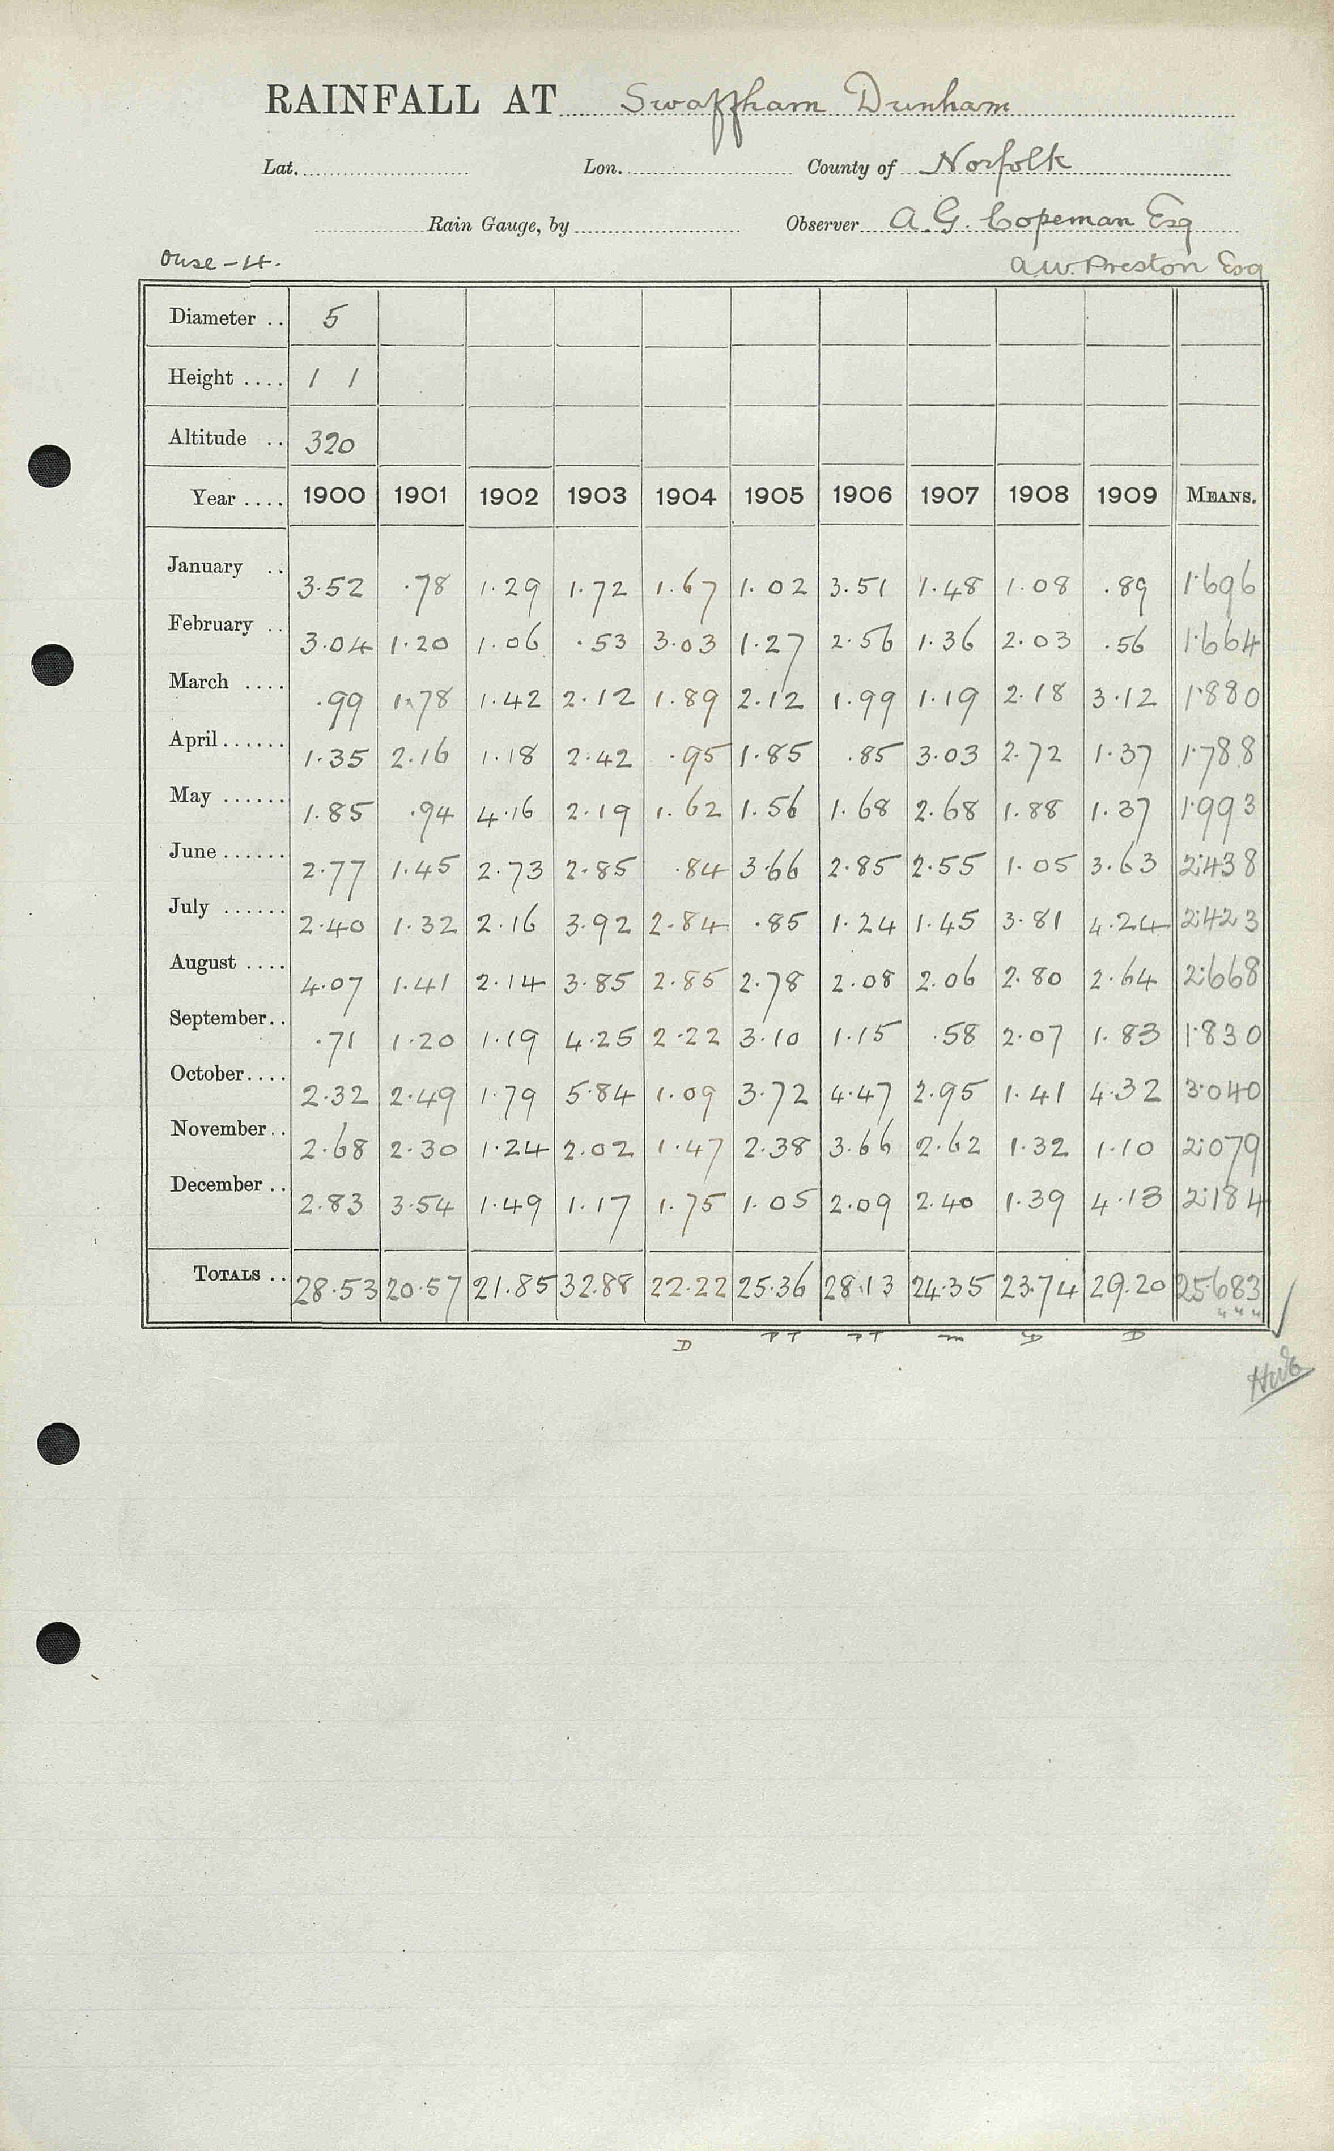 RAINFALL AT Swaffham Dunham
Lat. Lon. County of Norfolk
Rain Gauge, by Observer A. G. Copeman Esq
Ouse - 4. A.W. Preston Esq
Diameter .. 5
Height .... 1 1
Altitude .. 320
Year .... 1900 1901 1902 1903 1904 1905 1906 1907 1908 1909 MEANS.
January .. 3.52 .78 1.29 1.72 1.67 1.02 3.51 1.48 1.08 .89 1.696
February .. 3.04 1.20 1.06 .53 3.03 1.27 2.56 1.36 2.03 .56 1.664
March .... .99 1.78 1.42 2.12 1.89 2.12 1.99 1.19 2.18 3.12 1.880
April...... 1.35 2.16 1.18 2.42 .95 1.85 .85 3.03 2.72 1.37 1.788
May ...... 1.85 .94 4.16 2.19 1.62 1.56 1.68 2.68 1.88 1.37 1.993
June ...... 2.77 1.45 2.73 2.85 .84 3.66 2.85 2.55 1.05 3.63 2.438
July ...... 2.40 1.32 2.16 3.92 2.84 .85 1.24 1.45 3.81 4.24 2.423
August .... 4.07 1.41 2.14 3.85 2.85 2.78 2.08 2.06 2.80 2.64 2.668
September.. .71 1.20 1.19 4.25 2.22 3.10 1.15 .58 2.07 1.83 1.830
October.... 2.32 2.49 1.79 5.84 1.09 3.72 4.47 2.95 1.41 4.32 3.040
November.. 2.68 2.30 1.24 2.02 1.47 2.38 3.66 2.62 1.32 1.10 2.079
December .. 2.83 3.54 1.49 1.17 1.75 1.05 2.09 2.40 1.39 4.13 2.184
TOTALS .. 28.53 20.57 21.85 32.88 22.22 25.36 28.13 24.35 23.74 29.20 25.683
D PT PT m D D